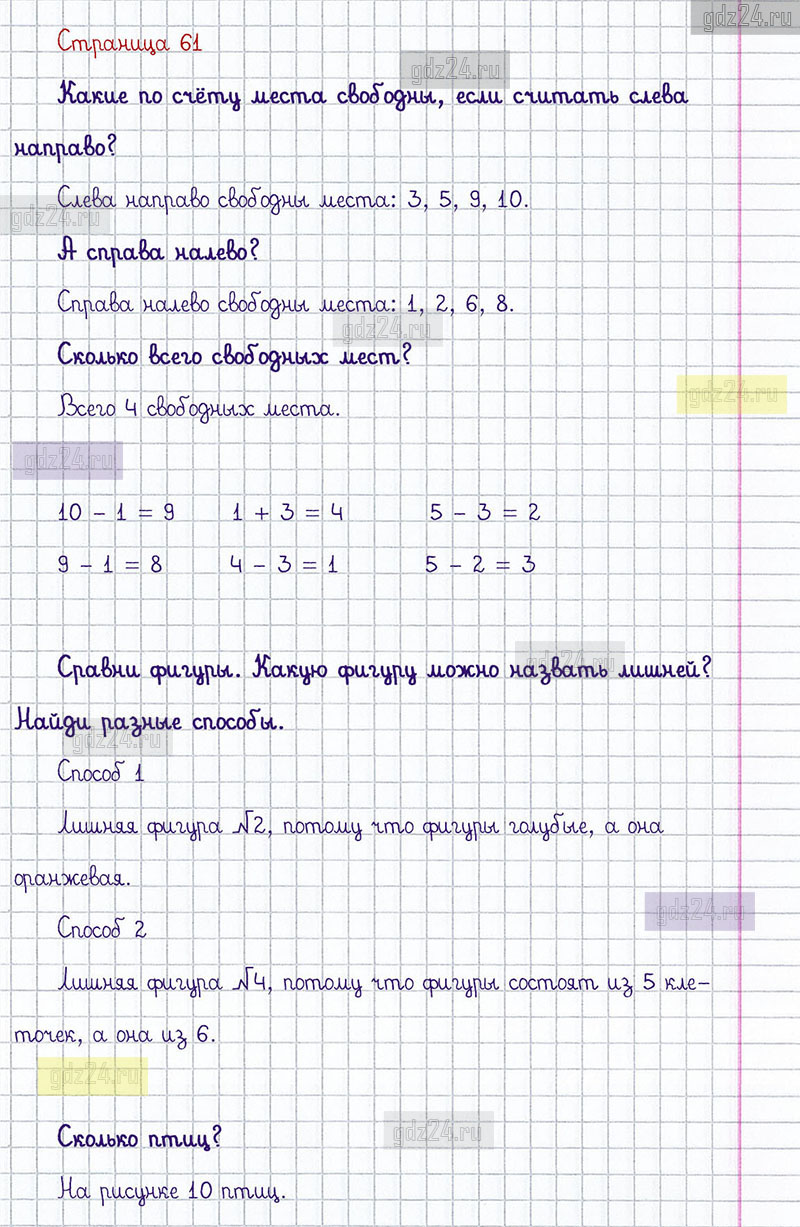 gdz24.ru
Страница 61
gdz24.ru
Какие по счёту места свободны, если считать слева
направо?
Слева направо свободны места: 3, 5, 9, 10.
gdz24.ru
А справа налево?
Справа налево свободны места: 1, 2, 6, 8.
gdz24.ru
Сколько всего свободных мест?
gdz24.ru
Всего 4 свободных места.
gdz24.ru
10 - 1 = 9 1 + 3 = 4 5 - 3 = 2
9 - 1 = 8 4 - 3 = 1 5 - 2 = 3
gdz24.ru
Сравни фигуры. Какую фигуру можно назвать лишней?
Найди разные способы.
gdz24.ru
Способ 1
Лишняя фигура №2, потому что фигуры голубые, а она
оранжевая.
gdz24.ru
Способ 2
Лишняя фигура №4, потому что фигуры состоят из 5 кле-
точек, а она из 6.
gdz24.ru
gdz24.ru
Сколько птиц?
На рисунке 10 птиц.